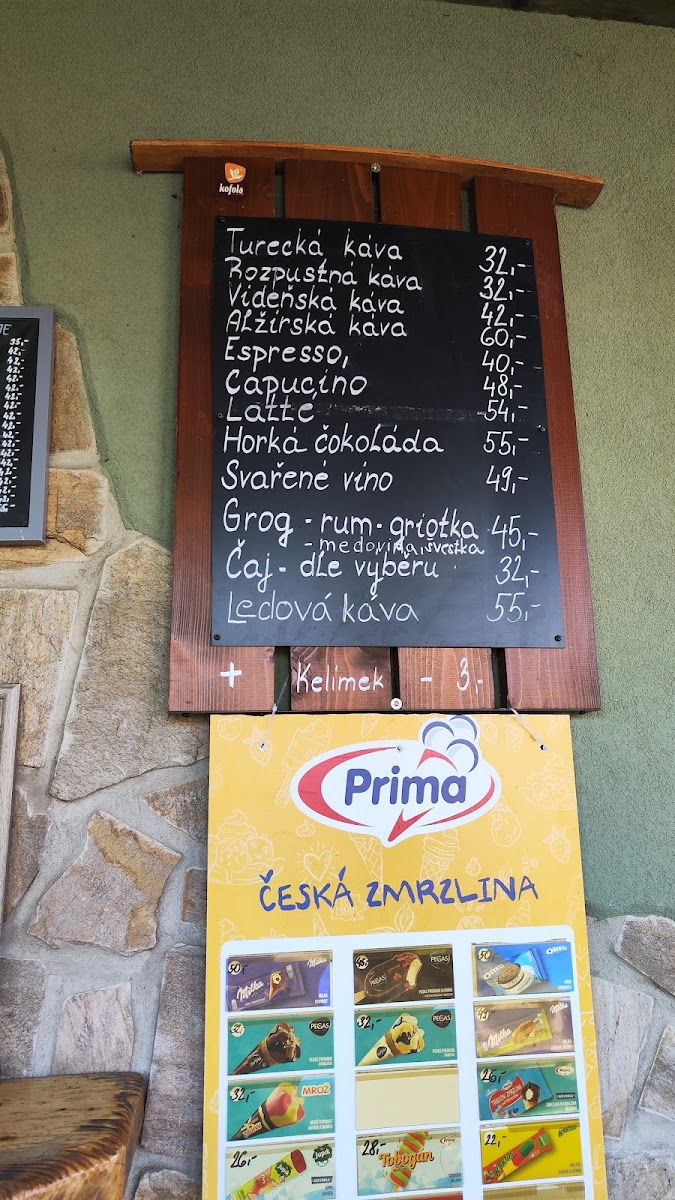 kofola
Turecká káva 32,-
Rozpustná káva 32,-
Vídeňská káva 42,-
Alžírská káva 60,-
Espresso, 40,-
Capucino 48,-
Latté 54,-
Horká čokoláda 55,-
Svařené víno 49,-
Grog - rum - griotka 45,-
- medovina, švestka
Čaj - dle výběru 32,-
Ledová káva 55,-
+ Kelímek - 3,-
35,-
42,-
42,-
42,-
42,-
42,-
42,-
42,-
42,-
42,-
Prima
ČESKÁ ZMRZLINA
50,- Milka
45,- PEGAS
50,- OREO
PEGAS
32,- PEGAS
Milka
32,- MROŽ
26,-
26,- Jupík
28,- Tobogan
22,-